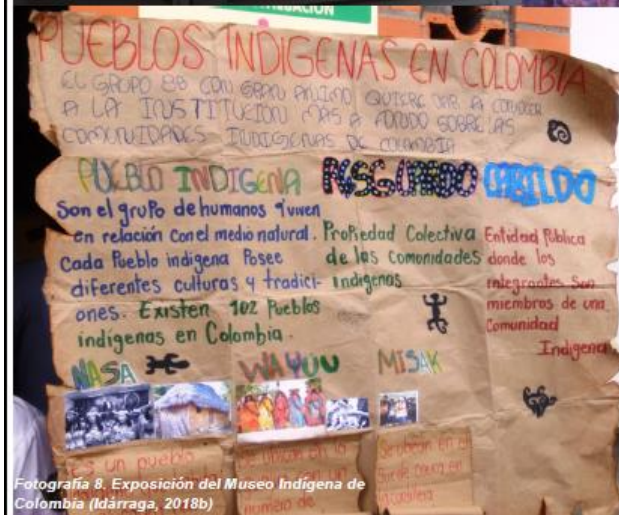 PUEBLOS INDIGENAS EN COLOMBIA
EL GRUPO 8B CON GRAN ANIMO QUIERE DAR A CONOCER
A LA INSTITUCIÓN MAS A FONDO SOBRE LAS
COMUNIDADES INDIGENAS DE COLOMBIA
PUEBLO INDIGENA
Son el grupo de humanos q' viven
en relación con el medio natural.
Cada Pueblo indigena Posee
diferentes culturas y tradici-
ones. Existen 102 Pueblos
indigenas en Colombia.
RESGUARDO
Propiedad Colectiva
de las Comunidades
Indigenas
CABILDO
Entidad Publica
donde los
integrantes Son
miembros de una
Comunidad
Indigena
NASA
WAYUU
MISAK
Es un pueblo
Se ubican en la
numero de
Se ubican en el
Sur de cauca en
Fotografía 8. Exposición del Museo Indígena de
Colombia (Idárraga, 2018b)